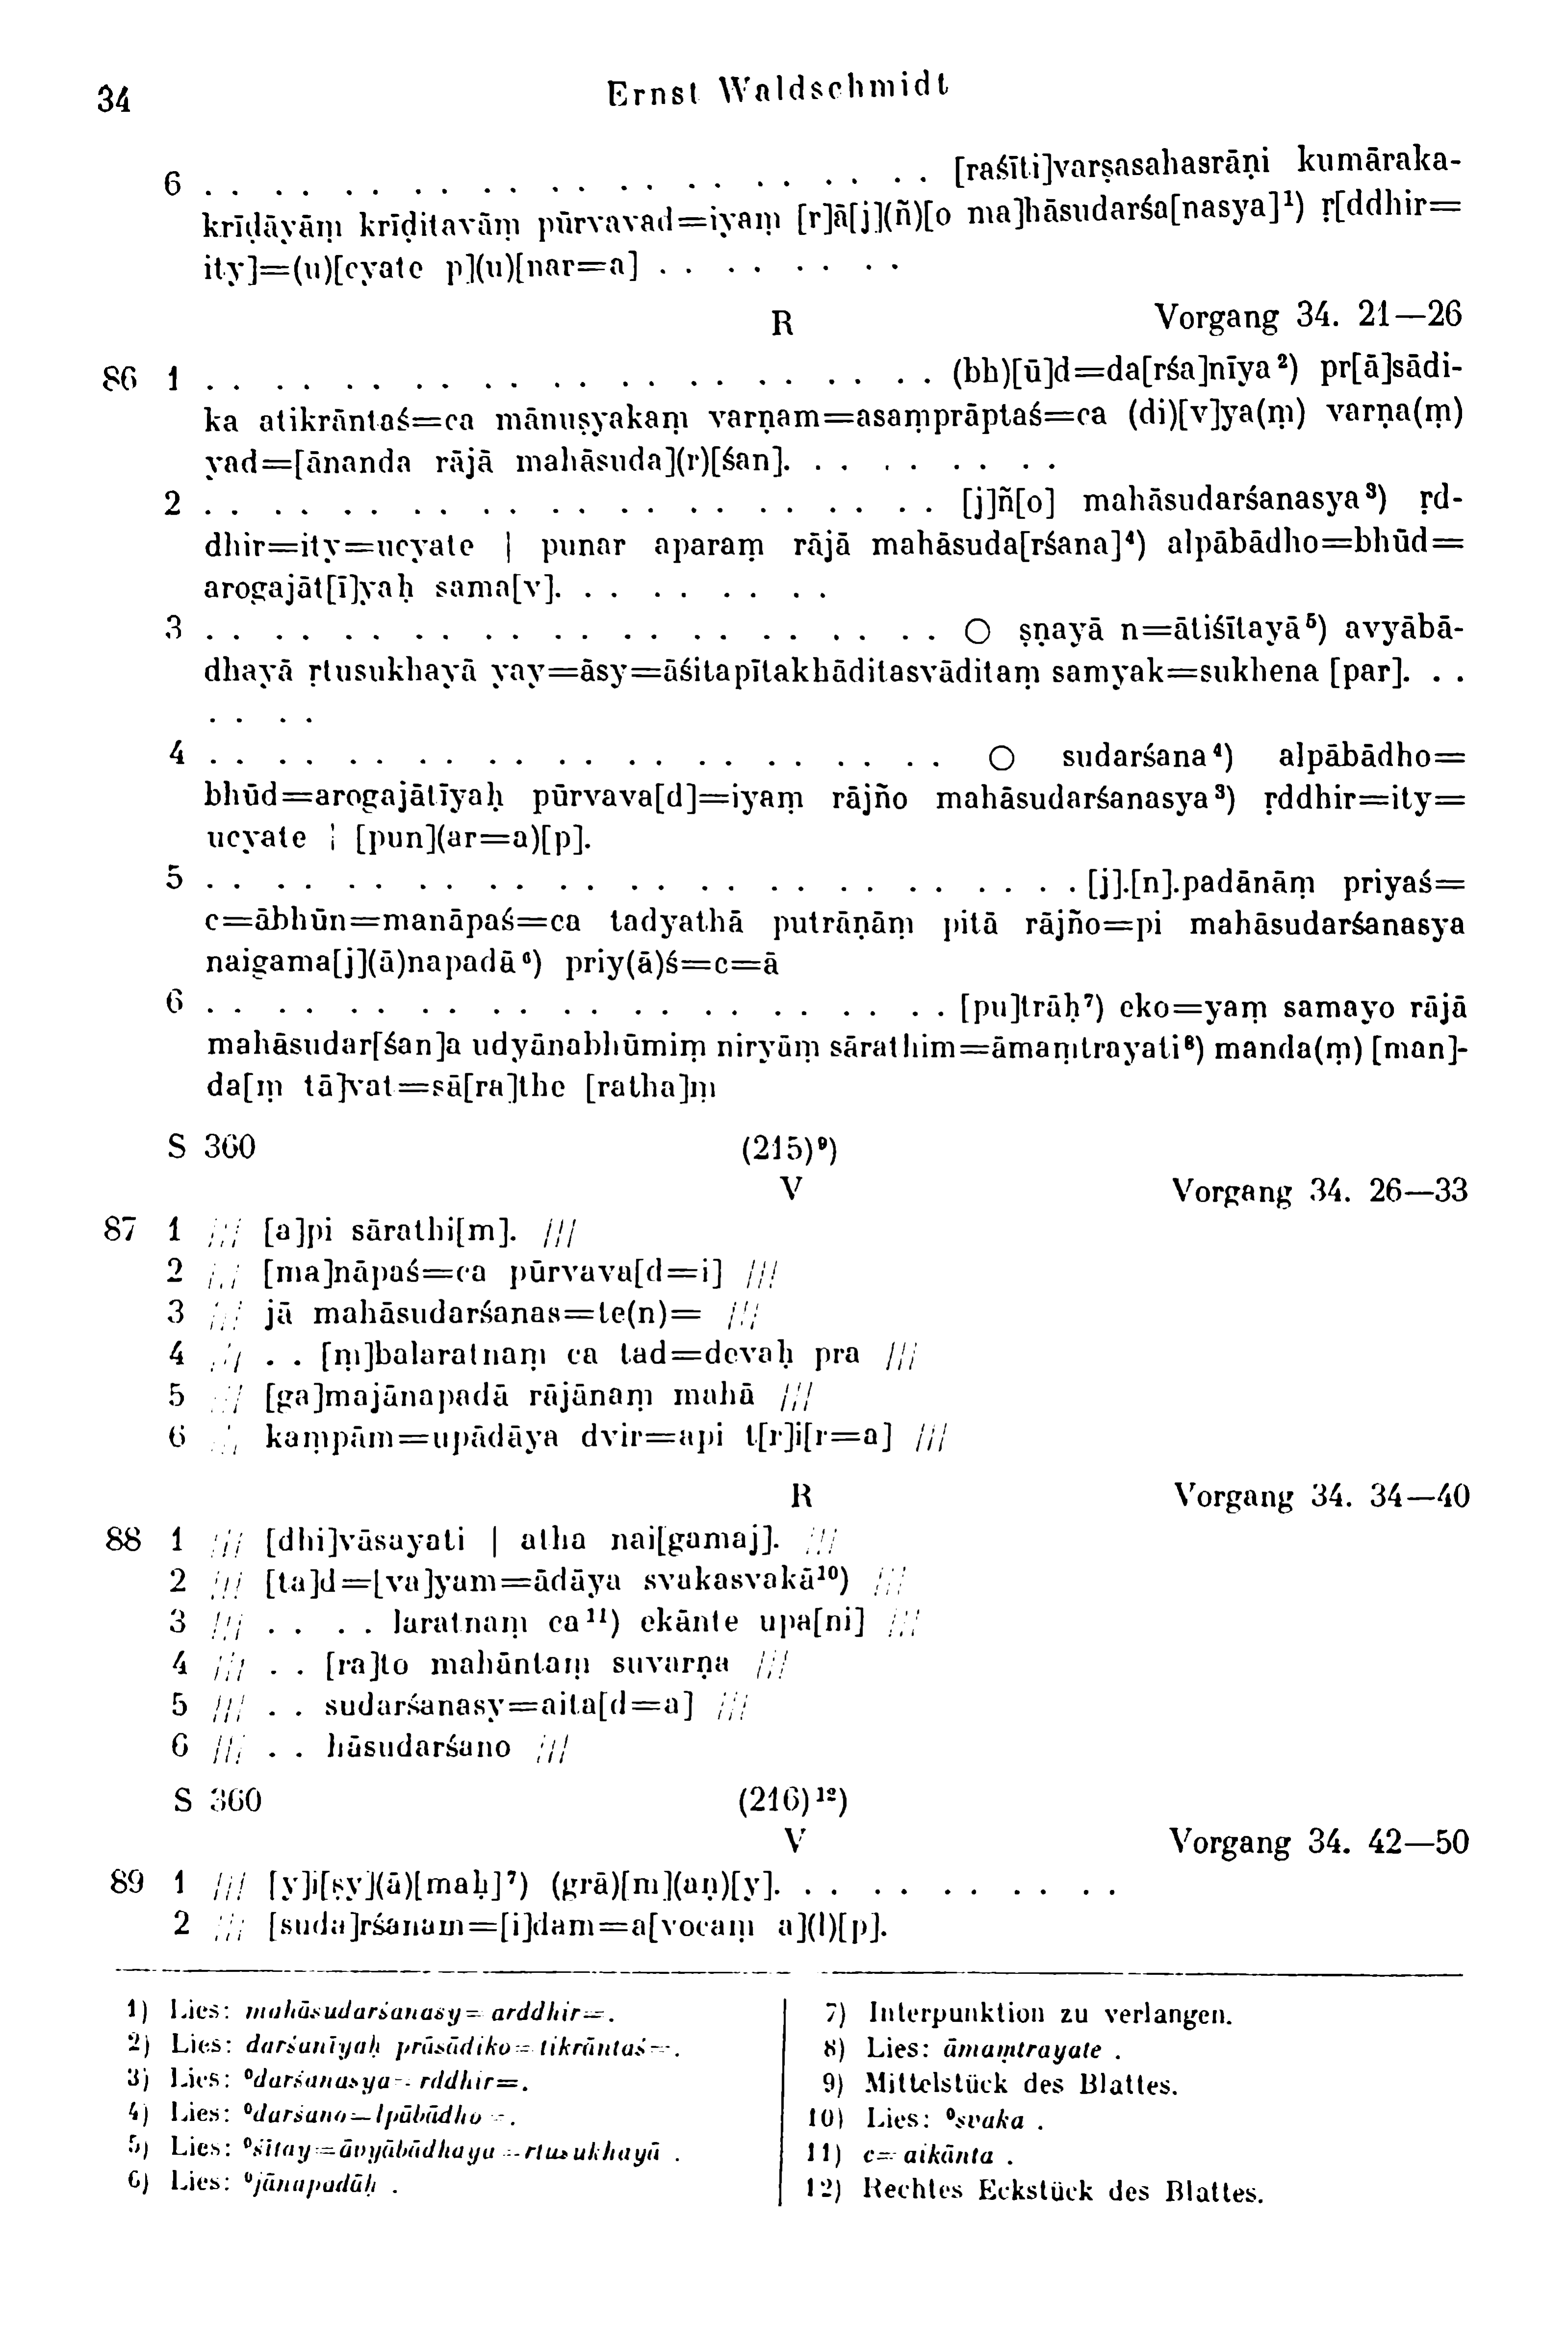 34 Ernst Waldschmidt
6 . . . . . . . . . . . . . . . . . . . . . [raśīti]varṣasahasrāṇi kumāraka-
krīḍāyāṃ krīḍitavāṃ pūrvavad=iyaṃ [r]ā[j](ñ)[o ma]hāsudarśa[nasya]¹) ṛ[ddhir=
ity]=(u)[cyate p](u)[nar=a] . . . . . . . .
R Vorgang 34. 21—26
86 1 . . . . . . . . . . . . . . . . . . . . . (bh)[ū]d=da[rśa]nīya²) pr[ā]sādi-
ka atikrāntaś=ca mānuṣyakaṃ varṇam=asaṃprāptaś=ca (di)[v]ya(ṃ) varṇa(ṃ)
yad=[ānanda rājā mahāsuda](r)[śan]. . . . . . . . .
2 . . . . . . . . . . . . . . . . . . . . . . [j]ñ[o] mahāsudarśanasya³) ṛd-
dhir=ity=ucyate | punar aparaṃ rājā mahāsuda[rśana]⁴) alpābādho=bhūd=
arogajāt[ī]yaḥ sama[v]. . . . . . . . .
3 . . . . . . . . . . . . . . . . . . . . . . ○ ṣṇayā n=ātiśītayā⁵) avyābā-
dhayā ṛtusukhayā yay=āsy=āśitapītakhāditasvāditaṃ samyak=sukhena [par]. . .
. . . .
4 . . . . . . . . . . . . . . . . . . . . . . ○ sudarśana⁴) alpābādho=
bhūd=arogajātīyaḥ pūrvava[d]=iyaṃ rājño mahāsudarśanasya³) ṛddhir=ity=
ucyate ¦ [pun](ar=a)[p].
5 . . . . . . . . . . . . . . . . . . . . . . . . . . [j].[n].padānāṃ priyaś=
c=ābhūn=manāpaś=ca tadyathā putrāṇāṃ pitā rājño=pi mahāsudarśanasya
naigama[j](ā)napadā⁶) priy(ā)ś=c=ā
6 . . . . . . . . . . . . . . . . . . . . . . [pu]trāḥ⁷) eko=yaṃ samayo rājā
mahāsudar[śan]a udyānabhūmiṃ niryāṃ sārathim=āmaṃtrayati⁸) manda(ṃ) [man]-
da[ṃ tā]vat=sā[ra]the [ratha]ṃ
S 360 (215)⁹)
V Vorgang 34. 26—33
87 1 /// [a]pi sārathi[m]. ///
2 /// [ma]nāpaś=ca pūrvava[d=i] ///
3 /// jā mahāsudarśanas=te(n)= ///
4 /// . . [ṃ]balaratnaṃ ca tad=devaḥ pra ///
5 /// [ga]majānapadā rājānaṃ mahā ///
6 /// kaṃpām=upādāya dvir=api t[r]i[r=a] ///
R Vorgang 34. 34—40
88 1 /// [dhi]vāsayati | atha nai[gamaj]. ///
2 /// [ta]d=[va]yam=ādāya svakasvakā¹⁰) ///
3 /// . . . . laratnaṃ ca¹¹) ekānte upa[ni] ///
4 /// . . [ra]to mahāntaṃ suvarṇa ///
5 /// . . sudarśanasy=aita[d=a] ///
6 /// . . hāsudarśano ///
S 360 (216)¹²)
V Vorgang 34. 42—50
89 1 /// [y]i[ṣy](ā)[maḥ]⁷) (grā)[m](aṇ)[y]. . . . . . . . . . .
2 /// [suda]rśanam=[i]dam=a[vocaṃ a](l)[p].
1) Lies: mahāsudarśanasy=arddhir=.
2) Lies: darśanīyaḥ prāsādiko=tikrāntaś=.
3) Lies: °darśanasya=rddhir=.
4) Lies: °darśano=lpābādho=.
5) Lies: °śītay=āvyābādhaya=rtusukhayā .
6) Lies: °jānapadāḥ .
7) Interpunktion zu verlangen.
8) Lies: āmaṃtrayate .
9) Mittelstück des Blattes.
10) Lies: °svaka .
11) c=aikānta .
12) Rechtes Eckstück des Blattes.